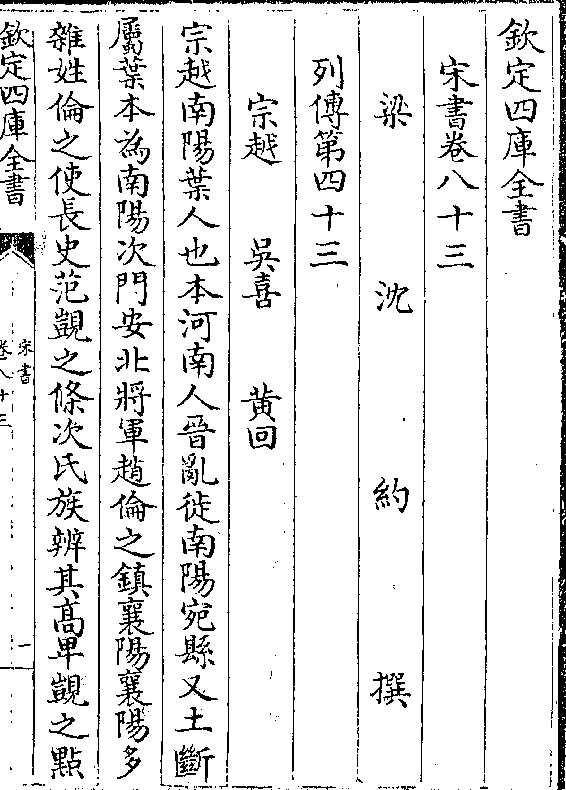 欽定四庫全書
宋書卷八十三
梁沈約撰
列傳第四十三
宗越 吳喜 黄回
宗越南陽葉人也本河南人晉亂徙南陽宛縣又土斷
屬葉本為南陽次門安北將軍趙倫之鎮襄陽襄陽多
雜姓倫之使長史范覬之條次氏族辨其高卑覬之點
欽定四庫全書
宋書
卷八十三
一